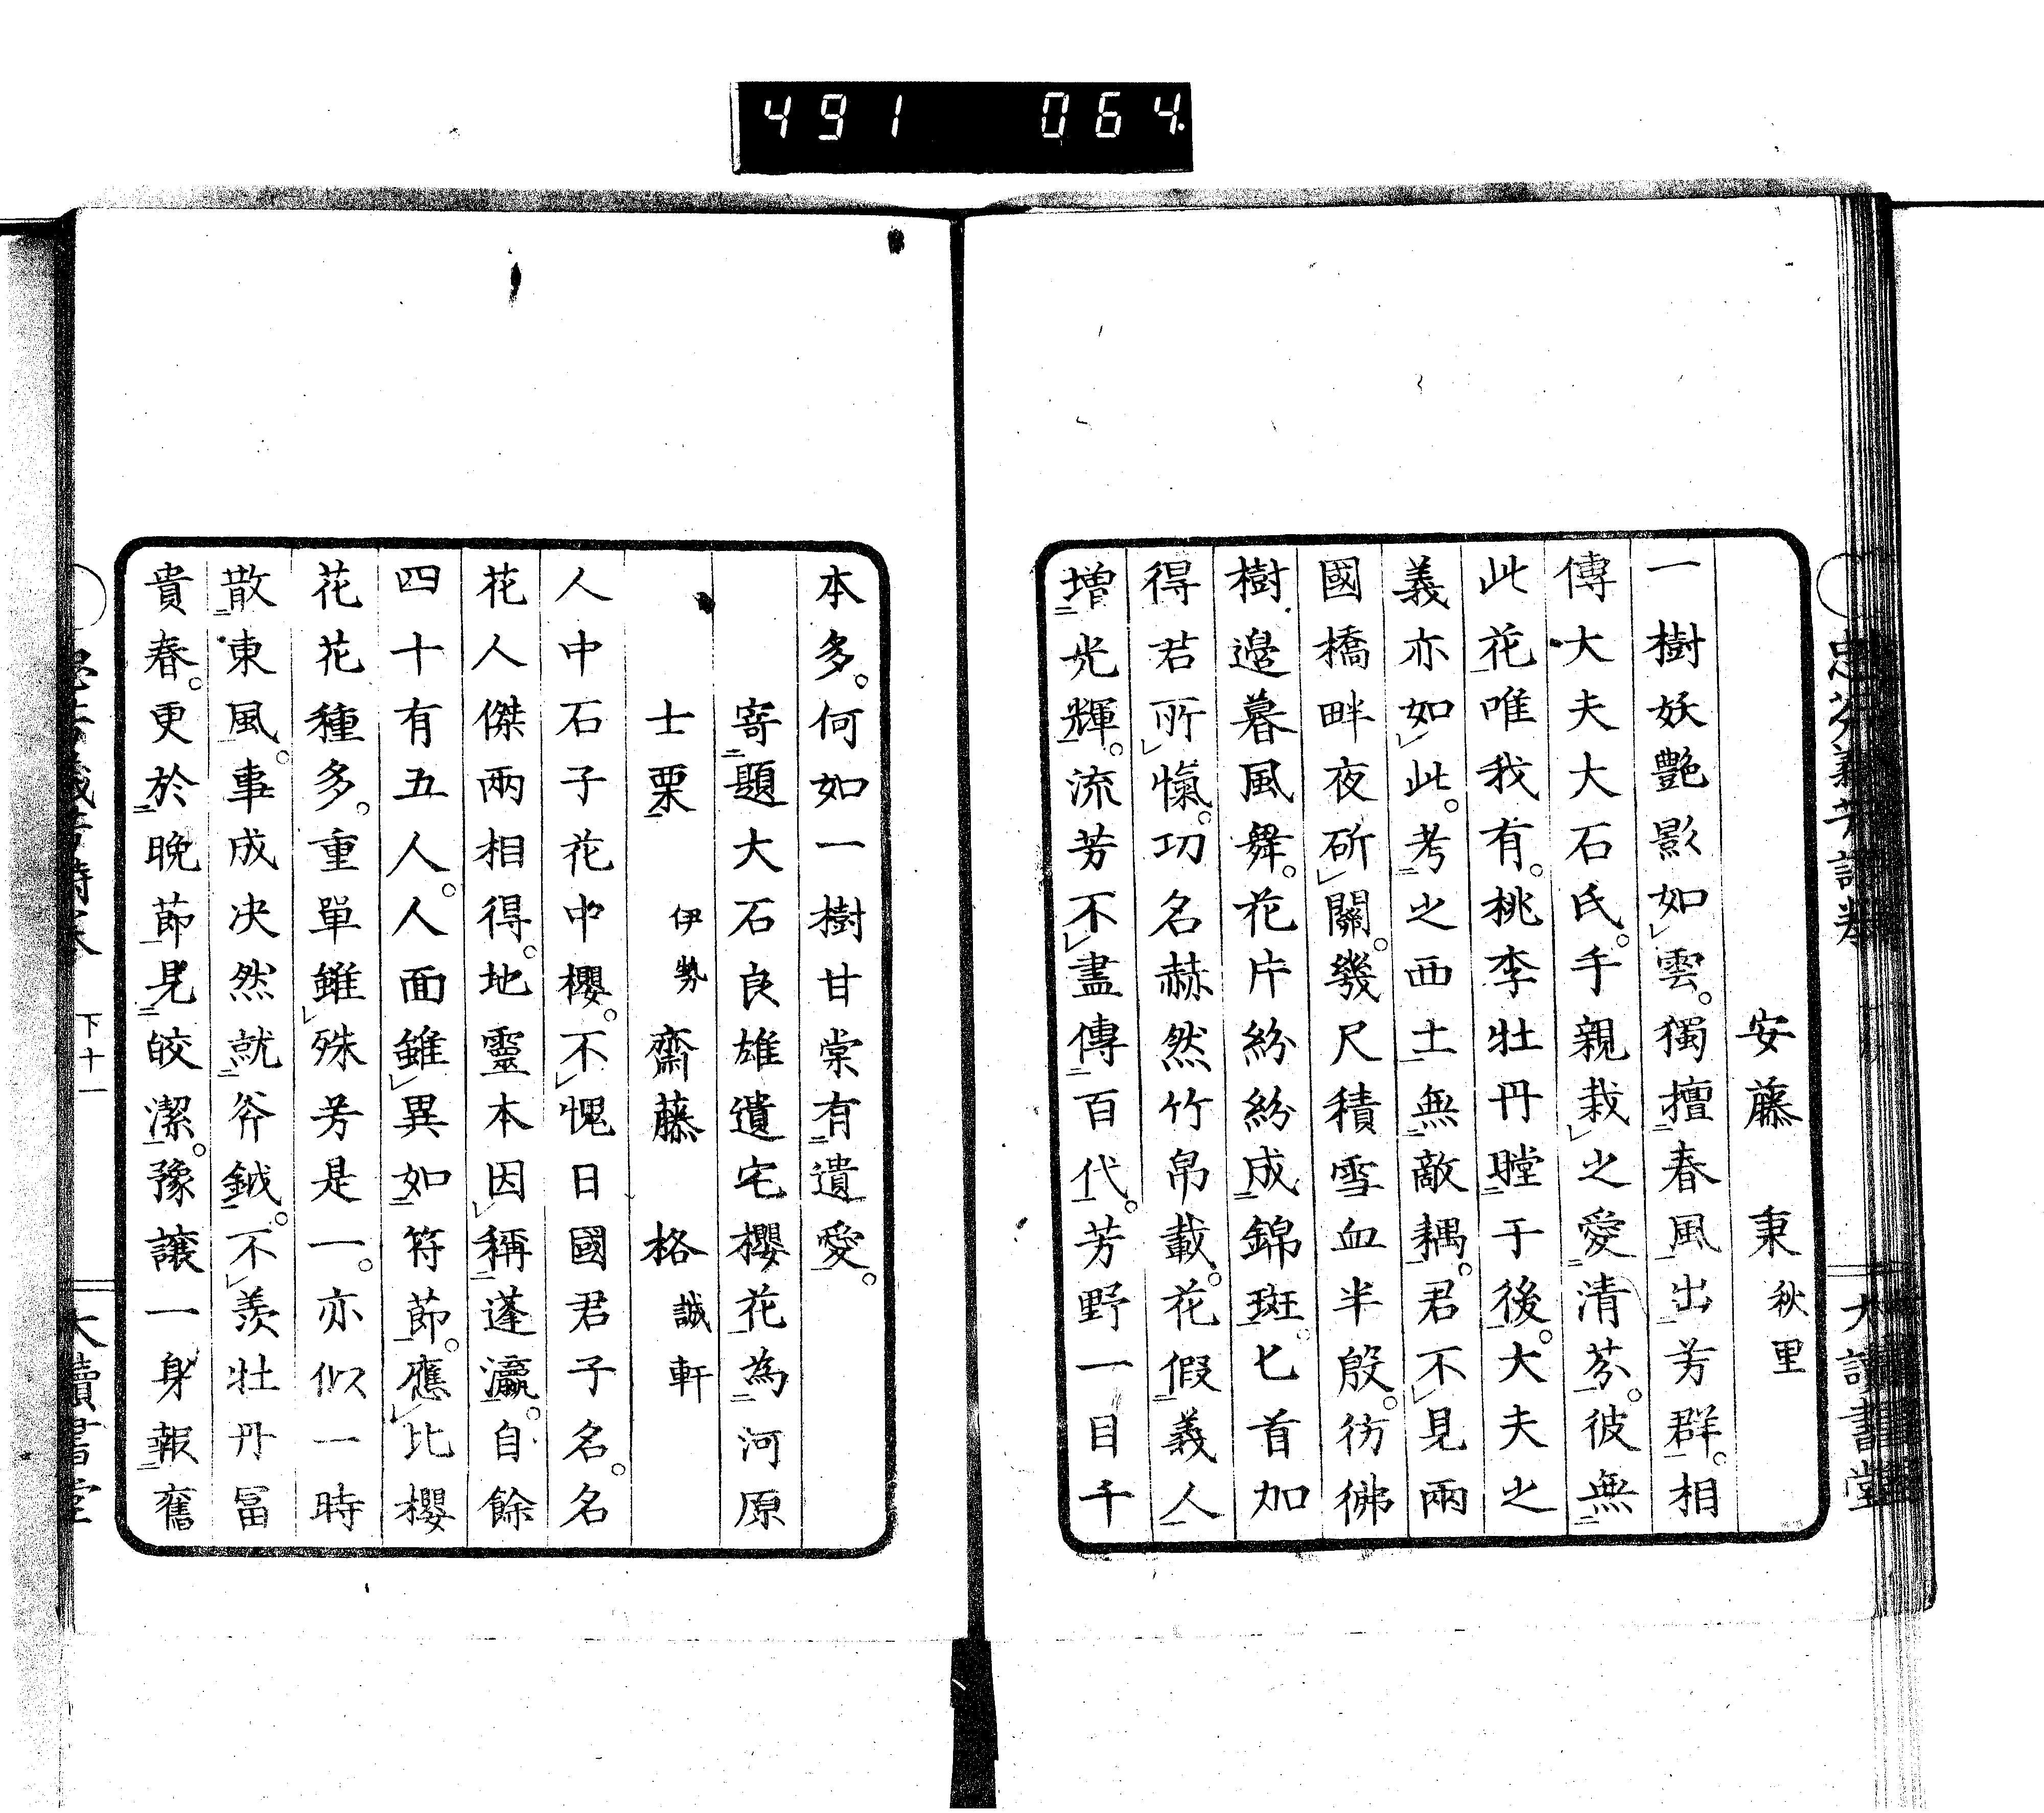 491 064
安藤 秉 秋里
一樹妖艷影如雲。獨擅春風出芳群。相
傳大夫大石氏。手親栽之愛清芬。彼無
此花唯我有。桃李牡丹瞠于後。大夫之
義亦如此。考之西土無敵耦。君不見兩
國橋畔夜斫關。幾尺積雪血半殷。彷彿
樹邊暮風舞。花片紛紛成錦斑。匕首加
得君所愾。功名赫然竹帛載。花假義人
增光輝。流芳不盡傳百代。芳野一目千
本多。何如一樹甘棠有遺愛。
寄題大石良雄遺宅櫻花為河原
士栗 伊勢 齋藤 格 誠軒
人中石子花中櫻。不愧日國君子名。名
花人傑兩相得。地靈本因稱蓬瀛。自餘
四十有五人。人面雖異如符節。應比櫻
花花種多。重單雖殊芳是一。亦似一時
散東風。事成決然就斧鉞。不羨牡丹冨
貴春。更於晩節見皎潔。豫讓一身報舊
下十一